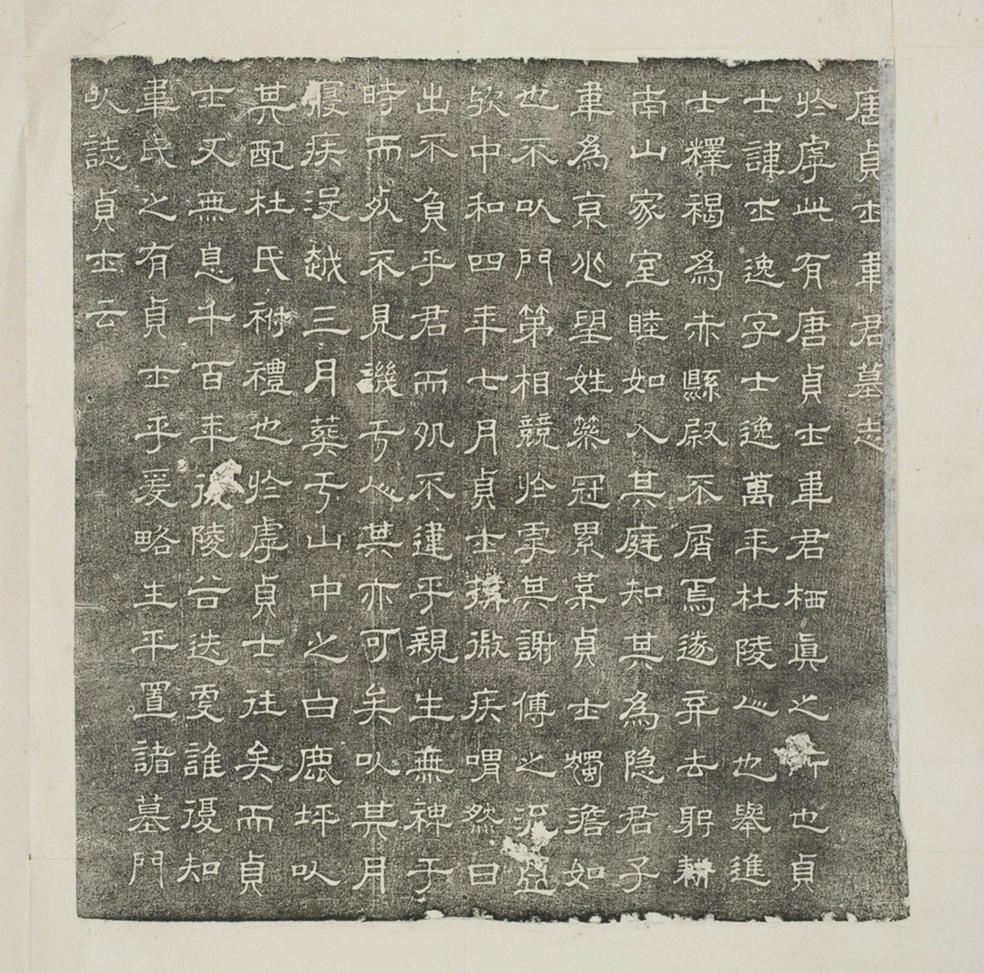 唐貞士韋君墓志
於虖此有唐貞士韋君栖眞之所也貞
士諱士逸字士逸萬年杜陵人也舉進
士釋褐為赤縣尉不屑焉遂弃去躬耕
南山家室睦如入其庭知其為隐君子
韋為京兆望姓簪冠累葉貞士獨澹如
也不以門第相競於虖其謝傅之流亞
欤中和四年七月貞士搆微疾喟然曰
出不負乎君而仉不逮乎親生無裨于
時而死不見譏于人其亦可矣以其月
寢疾没越三月葬于山中之白鹿坪以
其配杜氏祔禮也於虖貞士往矣而貞
士又無息千百年後陵谷迭變誰復知
韋氏之有貞士乎爰略生平置諸墓門
以誌貞士云